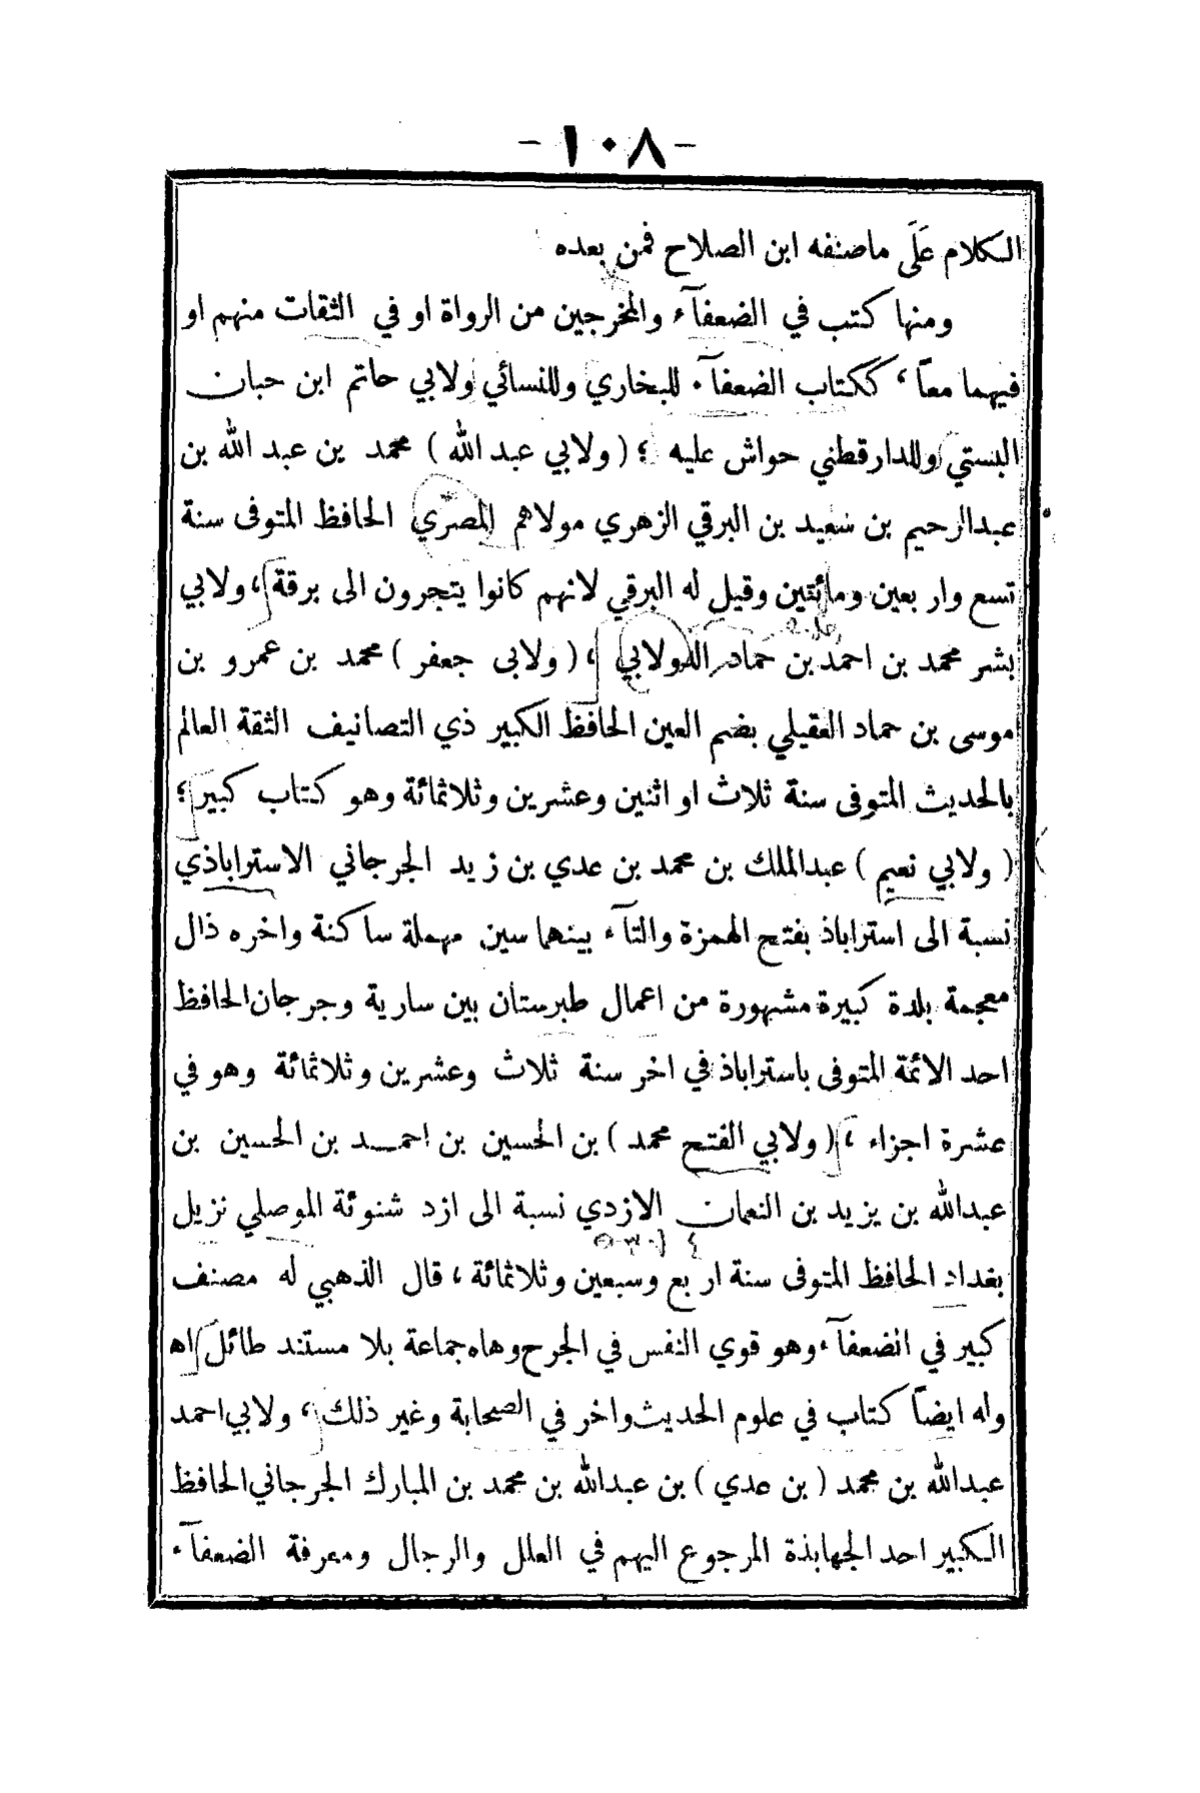 -١٠٨-
الكلام عَلَى ماصنفه ابن الصلاح فمن بعده
ومنها كتب في الضعفآء والمخرجين من الرواة او في الثقات منهم او
فيهما معاً ، ككتاب الضعفآء للبخاري وللنسائي ولابي حاتم ابن حبان
البستي وللدارقطني حواش عليه ؛ ( ولابي عبد الله ) محمد بن عبد الله بن
عبدالرحيم بن سعيد بن البرقي الزهري مولاهم المصري الحافظ المتوفى سنة
تسع واربعين ومائتين وقيل له البرقي لانهم كانوا يتجرون الى برقة ، ولابي
بشر محمد بن احمد بن حماد الدولابي ، ( ولابى جعفر ) محمد بن عمرو بن
موسى بن حماد العقيلي بضم العين الحافظ الكبير ذي التصانيف الثقة العالم
بالحديث المتوفى سنة ثلاث او اثنين وعشرين وثلاثمائة وهو كتاب كبير ؛
( ولابي نعيم ) عبدالملك بن محمد بن عدي بن زيد الجرجاني الاستراباذي
نسبة الى استراباذ بفتح الهمزة والتآء بينهما سين مهملة ساكنة واخره ذال
معجمة بلدة كبيرة مشهورة من اعمال طبرستان بين سارية وجرجان الحافظ
احد الائمة المتوفى باستراباذ في اخر سنة ثلاث وعشرين وثلاثمائة وهو في
عشرة اجزاء ، ( ولابي الفتح محمد ) بن الحسين بن احمـد بن الحسين بن
عبدالله بن يزيد بن النعمان الازدي نسبة الى ازد شنوئة الموصلي نزيل
بغداد الحافظ المتوفى سنة اربع وسبعين وثلاثمائة ، قال الذهبي له مصنف
كبير في الضعفآء وهو قوي النفس في الجرح وهاه جماعة بلا مستند طائل اه
وله ايضاً كتاب في علوم الحديث واخر في الصحابة وغير ذلك ، ولابي احمد
عبدالله بن محمد ( بن عدي ) بن عبدالله بن محمد بن المبارك الجرجاني الحافظ
الكبير احد الجهابذة المرجوع اليهم في العلل والرجال ومعرفة الضعفآء